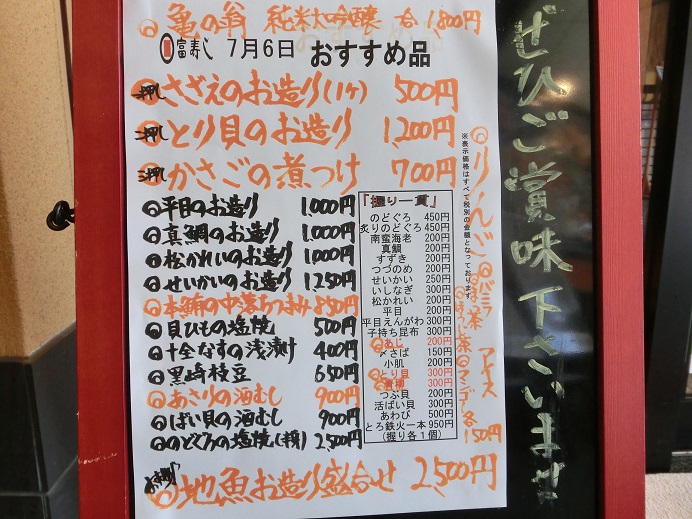 ◎亀の翁 純米大吟醸 合 1,800円
富寿し 7月6日 おすすめ品
一押し さざえのお造り(1ヶ) 500円
二押し とり貝のお造り 1,200円
三押し かさごの煮つけ 700円
◎平目のお造り 1,000円
◎真鯛のお造り 1,000円
◎松かれいのお造り 1,000円
◎せいかいのお造り 1,250円
◎本鮪の中落ちつまみ 850円
◎貝ひもの塩焼 500円
◎十全なすの浅漬け 400円
◎黒崎枝豆 650円
◎あさりの酒むし 900円
◎ばい貝の酒むし 900円
◎のどぐろの塩焼(1構) 2,500円
◎地魚お造り盛合せ 2,500円
『握り一貫』
のどぐろ 450円
炙りのどぐろ 450円
南蛮海老 200円
真鯛 200円
すずき 200円
つづのめ 200円
せいかい 250円
いしなぎ 300円
松かれい 200円
平目 200円
平目えんがわ 300円
子持ち昆布 300円
◎あじ 200円
〆さば 150円
小肌 200円
◎とり貝 300円
◎青柳 300円
つぶ貝 200円
活ばい貝 300円
あわび 500円
とろ鉄火一本 950円
(握り各1個)
※表示価格はすべて税別の金額となっております。
◎りんご
◎バニラ
アイス
各150円
ぜひご賞味下さいませ